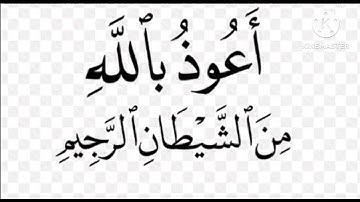 أَعُوذُ بِٱللَّهِ
مِنَ ٱلشَّيْطَانِ ٱلرَّجِيمِ
KINEMASTER